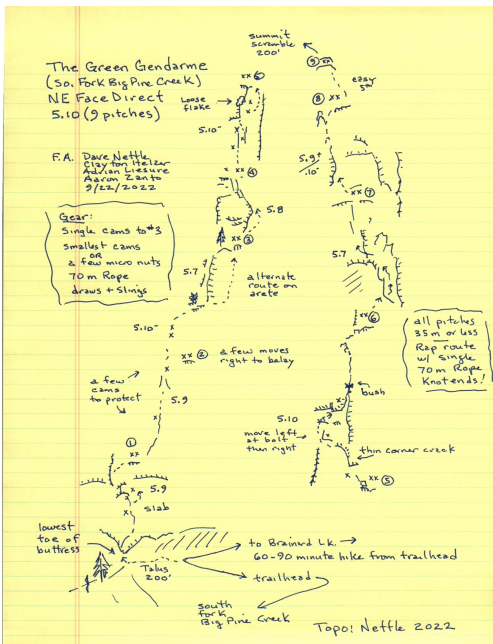 The Green Gendarme
(So. Fork Big Pine Creek)
NE Face Direct
5.10 (9 pitches)
F.A. Dave Nettle
Clayton Helzer
Adrian Liesure
Aaron Zanto
9/22/2022
Gear:
Single cams to #3
smallest cams
OR
a few micro nuts
70 m Rope
draws + slings
xx 5
Loose
flake
5.10-
xx 4
5.8
xx 3
5.7
alternate
route on
arete
5.10-
xx 2
a few moves
right to belay
a few
cams
to protect
5.9
1
xx
5.9
slab
lowest
toe of
buttress
Talus
200'
to Brainard Lk. →
60-90 minute hike from trailhead
trailhead
south
fork
Big Pine Creek
summit
scramble
200'
9 xx
easy
5th
8 xx
5.9+
.10-
xx 7
5.7
xx 6
all pitches
35 m or less
Rap route
w/ single
70 m Rope
Knot ends!
bush
5.10
move left
at bolt
then right
thin corner crack
xx 5
Topo: Nettle 2022